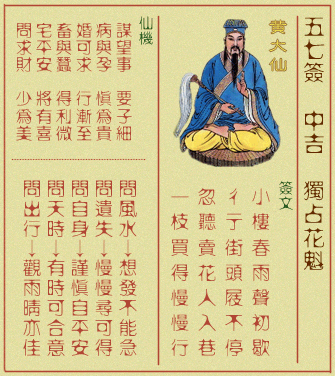 五七簽 中吉 獨占花魁
黃大仙
簽文
小樓春雨聲初歇
彳亍街頭屐不停
忽聽賣花人入巷
一枝買得慢慢行
仙機
謀望事 要子細
病與孕 慎為貴
婚可求 行漸至
畜與蠶 得利微
宅平安 將有喜
問求財 少為美
問風水→想發不能急
問遺失→慢慢尋可得
問自身→謹慎自平安
問天時→有時可合意
問出行→觀雨晴亦佳